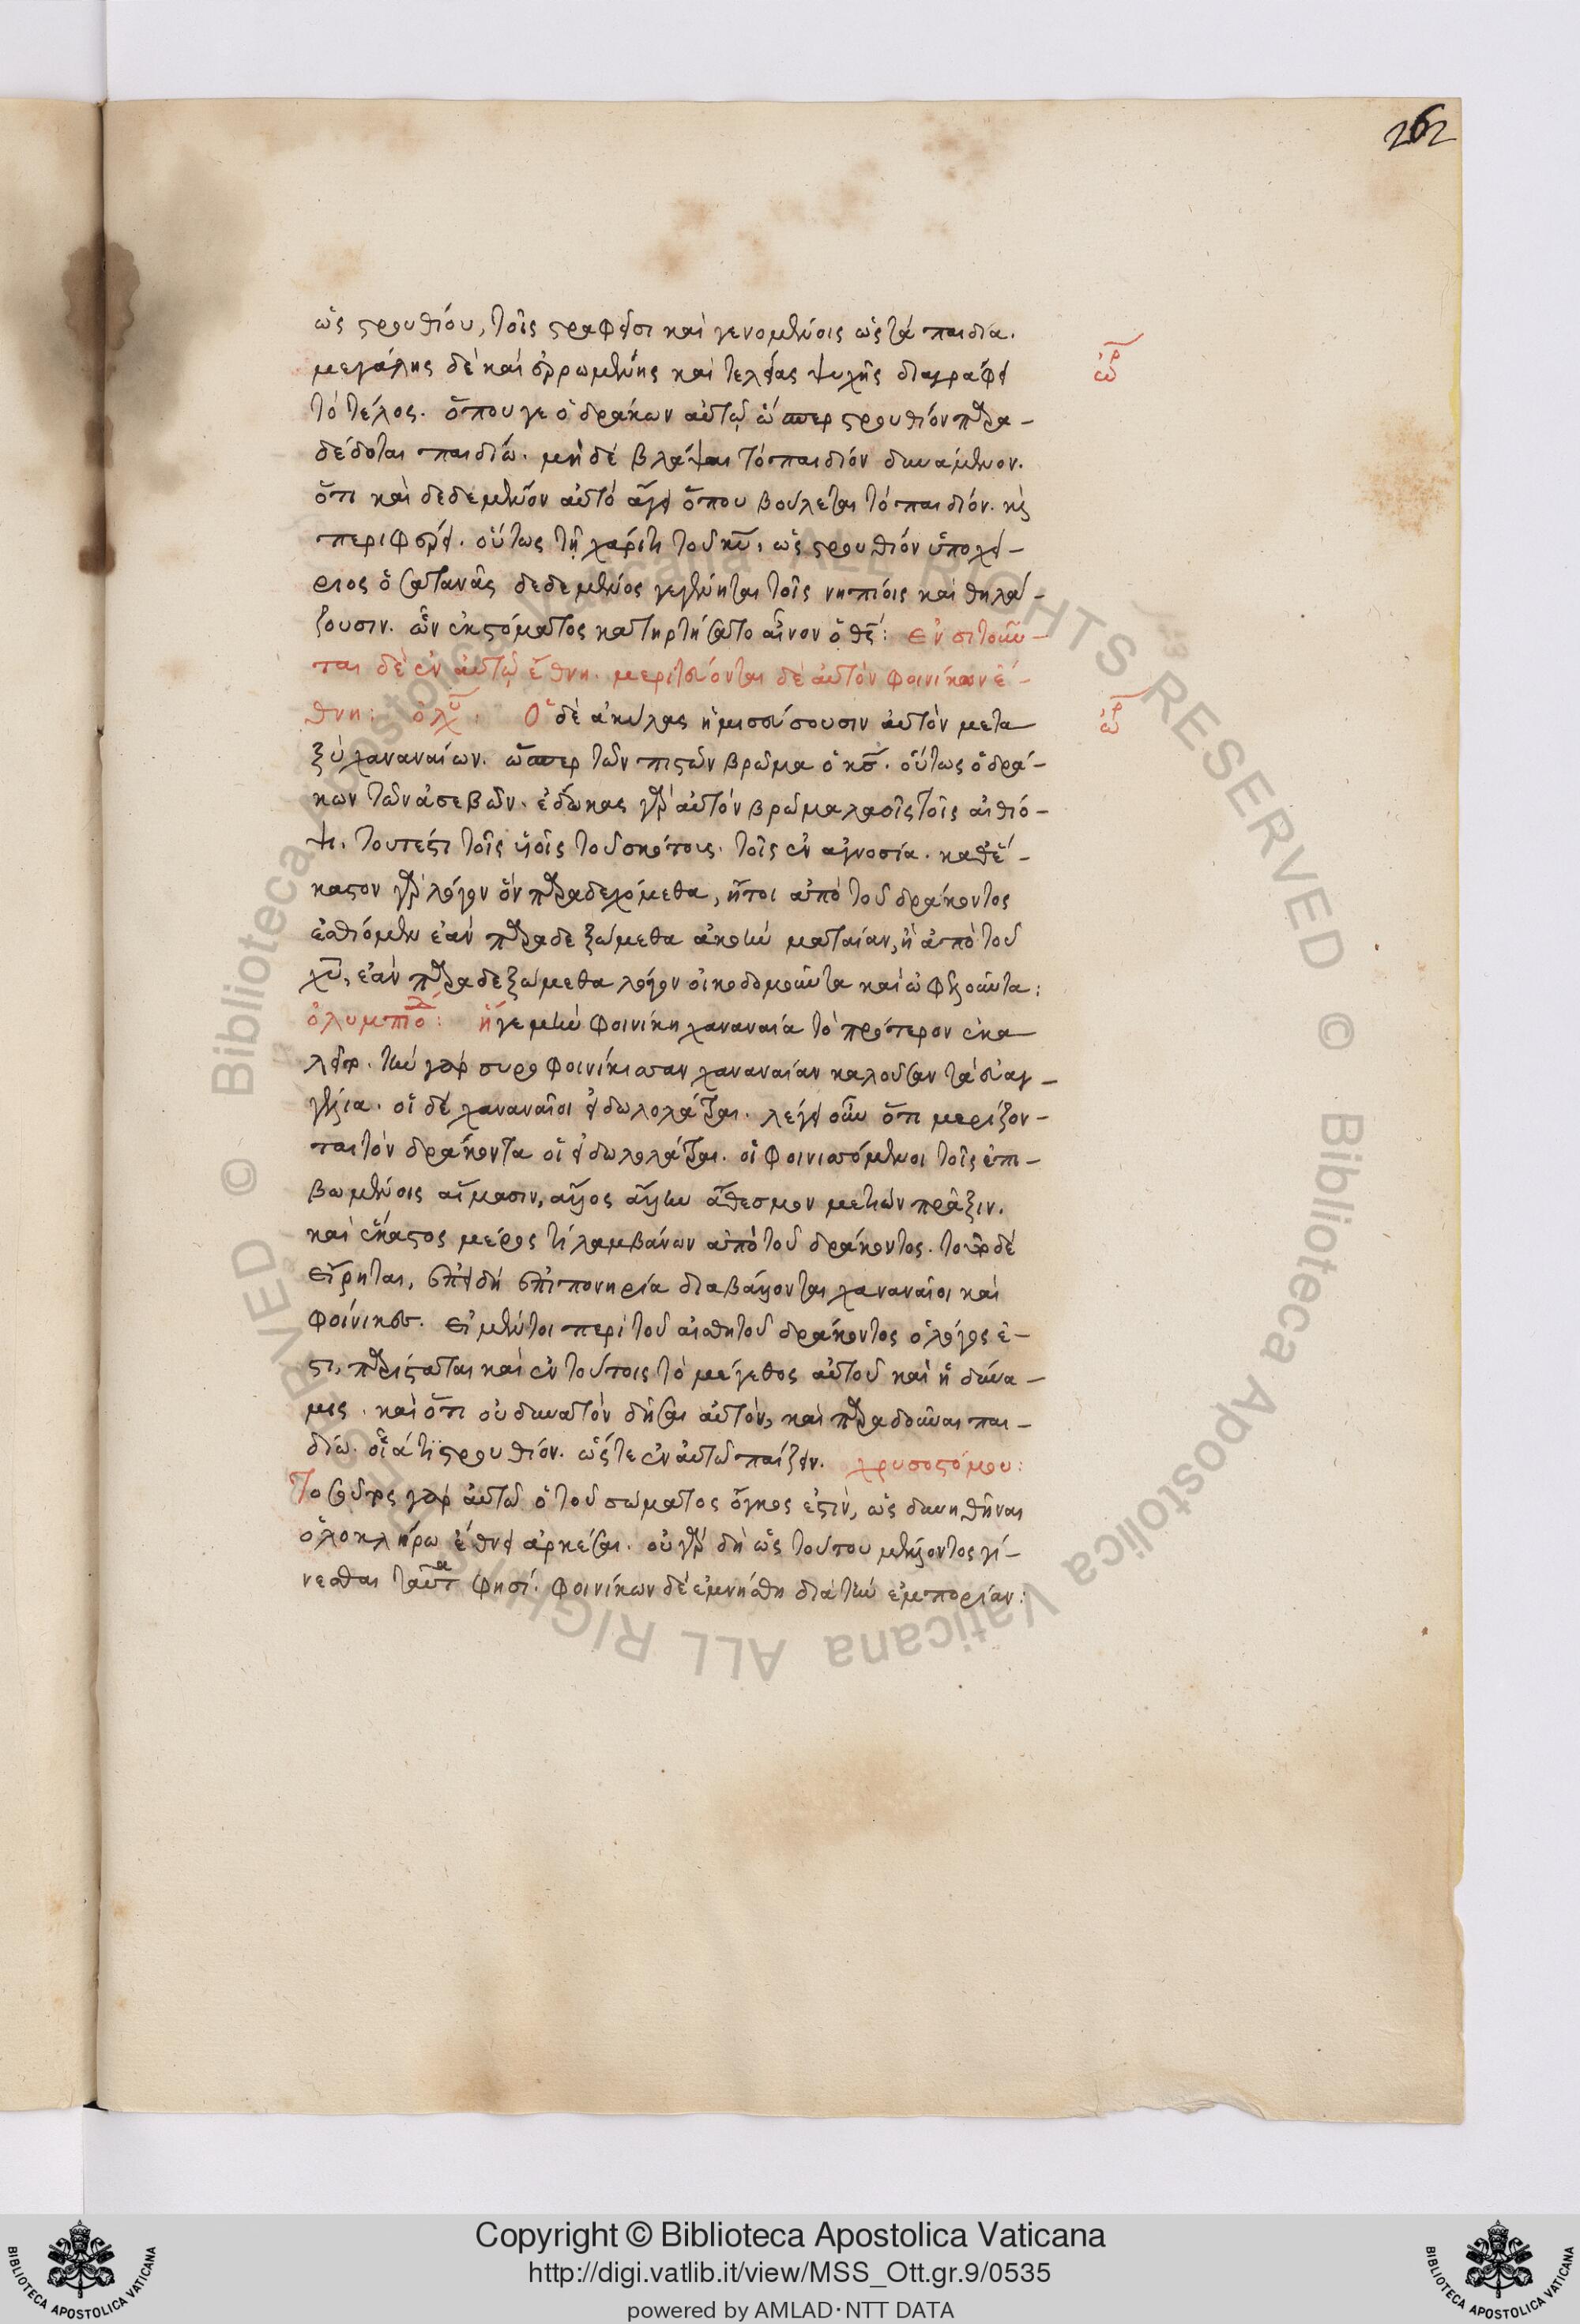 262
ὡς στρουθίου, τοῖς στραφεῖσι καὶ γενομένοις ὡς τὰ παιδία.
μεγάλης δὲ καὶ ἐρρωμένης καὶ τελείας ψυχῆς διαγράφει
τὸ τέλος. ὅπου γε ὁ δράκων αὐτῷ ὥσπερ στρουθίον παρα-
δέδοται παιδίῳ. μηδὲ βλάψαι τὸ παιδίον δυνάμενον.
ὅτι καὶ δεδεμένον αὐτὸ ἄγει ὅπου βούλεται τὸ παιδίον. καὶ
περιφέρει. οὕτως τῇ χάριτι τοῦ κυ, ὡς στρουθίον ὑποχεί-
ριος ὁ σατανᾶς δεδεμένος γεγένηται τοῖς νηπίοις καὶ θηλά-
ζουσιν. ὧν ἐκ στόματος κατηρτήσατο αἶνον ὁ θς: Ἐνσιτοῦν-
ται δὲ ἐν αὐτῷ ἔθνη. μεριτεύονται δὲ αὐτὸν φοινίκων ἔ-
θνη: Ὁ δὲ ἀκύλας ἡμισεύσουσιν αὐτὸν μετα
ξὺ χαναναίων. ὥσπερ τῶν πιστῶν βρῶμα ὁ κς. οὕτως ὁ δρά-
κων τῶν ἀσεβῶν. ἔδωκας γὰρ αὐτὸν βρῶμα λαοῖς τοῖς αἰθίο-
ψι. τουτέστι τοῖς υἱοῖς τοῦ σκότους. τοῖς ἐν ἀγνοσία. καθ' ἕ-
καστον γὰρ λόγον ὃν παραδεχόμεθα, ἤτοι ἀπὸ τοῦ δράκοντος
ἐσθίομεν ἐὰν παραδεξώμεθα ἀκοὴν ματαίαν, ἢ ἀπὸ τοῦ
χυ, ἐὰν παραδεξώμεθα λόγον οἰκοδομοῦντα καὶ ὠφελοῦντα:
ὀλυμπιο: ἥ γε μὴν φοινίκη χαναναία τὸ πρότερον ἐκα
λεῖτο. τὴν γὰρ συροφοινίκισσαν χαναναίαν καλοῦσαν τὰ εὐαγ-
γέλια. οἱ δὲ χαναναῖοι εἰδωλολάτραι. λέγει οὖν ὅτι μερίζον-
ται τὸν δράκοντα οἱ εἰδωλολάτραι. οἱ φοινισσόμενοι τοῖς ἐπι-
βωμένοις αἵμασιν, ἄλλος ἄλλην ἄθεσμον μετιὼν πρᾶξιν.
καὶ ἕκαστος μέρος τι λαμβάνων ἀπὸ τοῦ δράκοντος. τοῦτο δὲ
εἴρηται, ἐπειδὴ ἐπὶ πονηρία διαβάλλονται χαναναῖοι καὶ
φοίνικες. Εἰ μέντοι περὶ τοῦ αἰσθητοῦ δράκοντος ὁ λόγος ἐ-
στι, παρίσταται καὶ ἐν τούτοις τὸ μέγεθος αὐτοῦ καὶ ἡ δύνα-
μις. καὶ ὅτι οὐ δυνατὸν δῆσαι αὐτὸν, καὶ παραδοῦναι παι-
δίω. οἷά τι στρουθίον. ὥστε ἐν αὐτῶ παίζειν. χρυσοστόμου:
Τοσοῦτος γὰρ αὐτῶ ὁ τοῦ σώματος ὄγκος ἐστὶν, ὡς δυνηθῆναι
ὁλοκλήρω ἔθνει ἀρκέσαι. οὐ γὰρ δὴ ὡς τούτου μέλλοντος γί-
νεσθαι ταῦτα φησί. φοινίκων δὲ ἐμνήσθη διὰ τὴν ἐμπορίαν:
Copyright © Biblioteca Apostolica Vaticana
http://digi.vatlib.it/view/MSS_Ott.gr.9/0535
powered by AMLAD·NTT DATA
BIBLIOTECA APOSTOLICA VATICANA
BIBLIOTECA APOSTOLICA VATICANA
© Biblioteca Apostolica Vaticana ALL RIGHTS RESERVED © Biblioteca Apostolica Vaticana ALL RIGHTS RESERVED